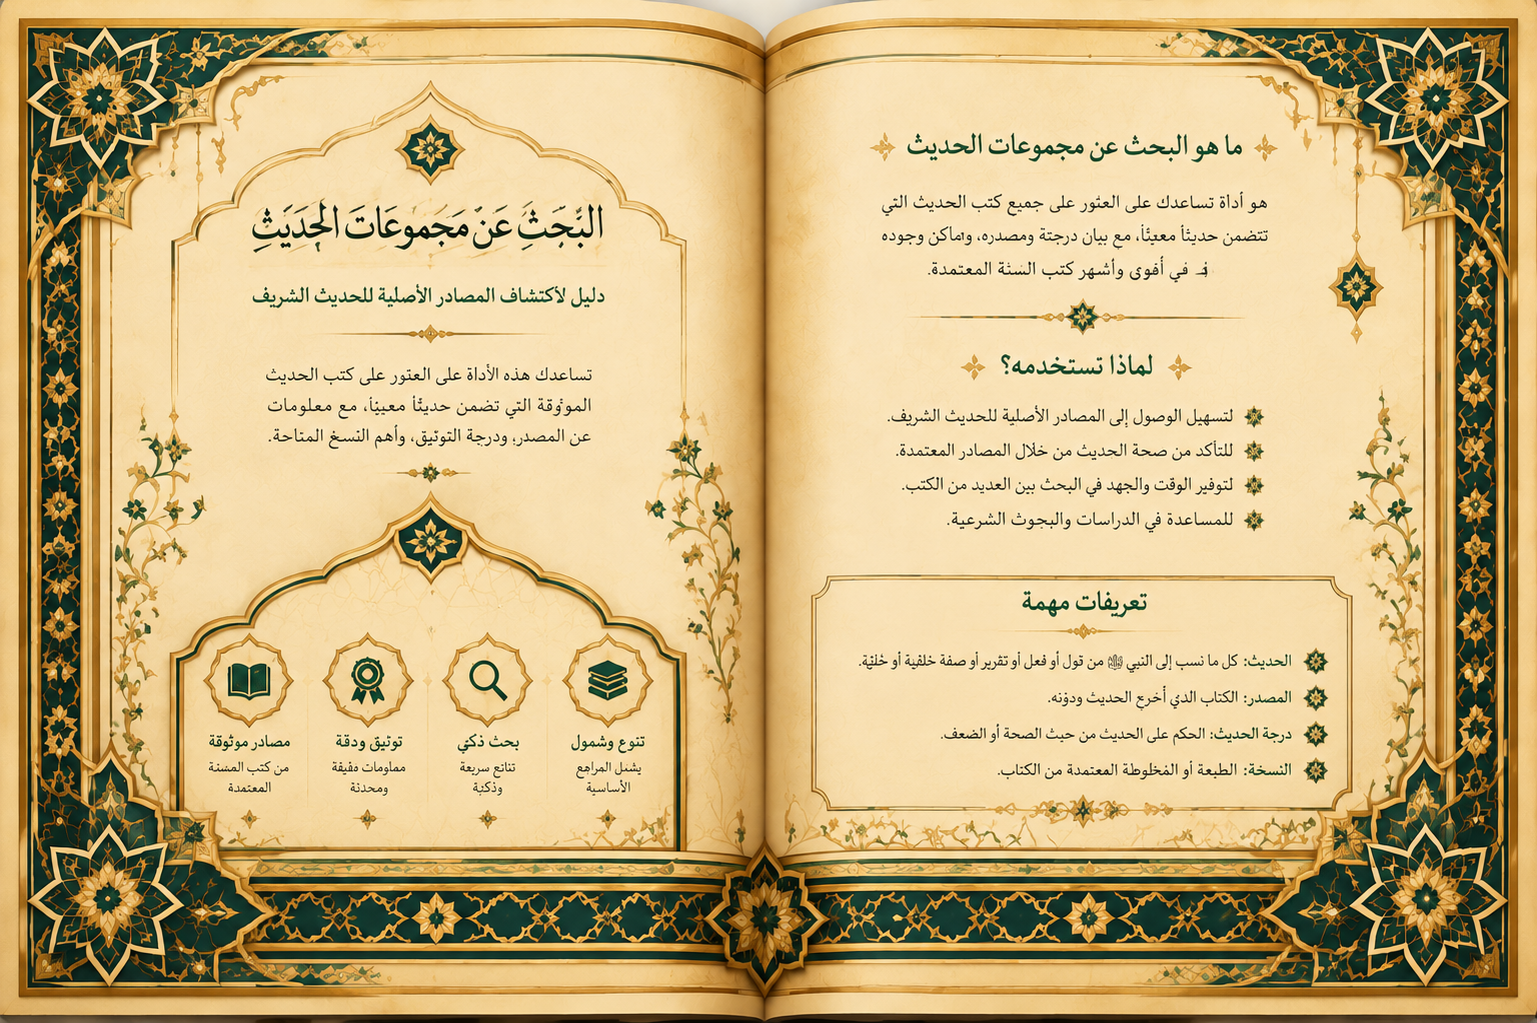 ما هو البحث عن مجموعات الحديث
هو أداة تساعدك على العثور على جميع كتب الحديث التي
تتضمن حديثاً معيناً، مع بيان درجتة ومصدره، وأماكن وجوده
في أقوى وأشهر كتب السنة المعتمدة.
لماذا تستخدمه؟
لتسهيل الوصول إلى المصادر الأصلية للحديث الشريف.
للتأكد من صحة الحديث من خلال المصادر المعتمدة.
لتوفير الوقت والجهد في البحث بين العديد من الكتب.
للمساعدة في الدراسات والبحوث الشرعية.
تعريفات مهمة
الحديث: كل ما نسب إلى النبي ﷺ من قول أو فعل أو تقرير أو صفة خلقية أو خلقية.
المصدر: الكتاب الذي أخرج الحديث ودونه.
درجة الحديث: الحكم على الحديث من حيث الصحة أو الضعف.
النسخة: الطبعة أو المخلوطة المعتمدة من الكتاب.
البحث عن مجموعات الحديث
دليل لأكتشاف المصادر الأصلية للحديث الشريف
تساعدك هذه الأداة على العثور على كتب الحديث
الموثوقة التي تضمن حديثاً معيناً، مع معلومات
عن المصدر، ودرجة التوثيق، وأهم النسخ المتاحة.
تنوع وشمول
يشمل
الأساسية
بحث ذكي
سريعة
وذكية
توثيق ودقة
مصادر موثوقة
من كتب المسنة
المعتمدة